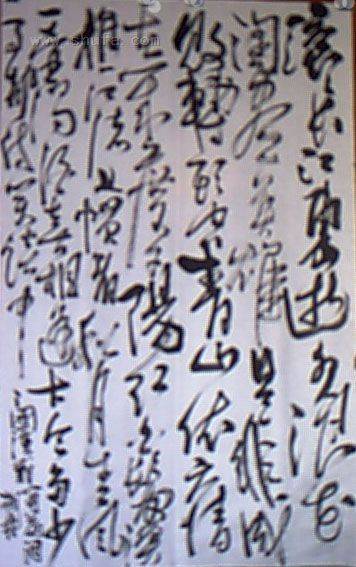 滚滚长江东逝水浪花
淘尽英雄是非成
败转头空青山依旧
在几度夕阳红白发渔
樵江渚上惯看秋月春风
一壶浊酒喜相逢古今多少
事都付笑谈中